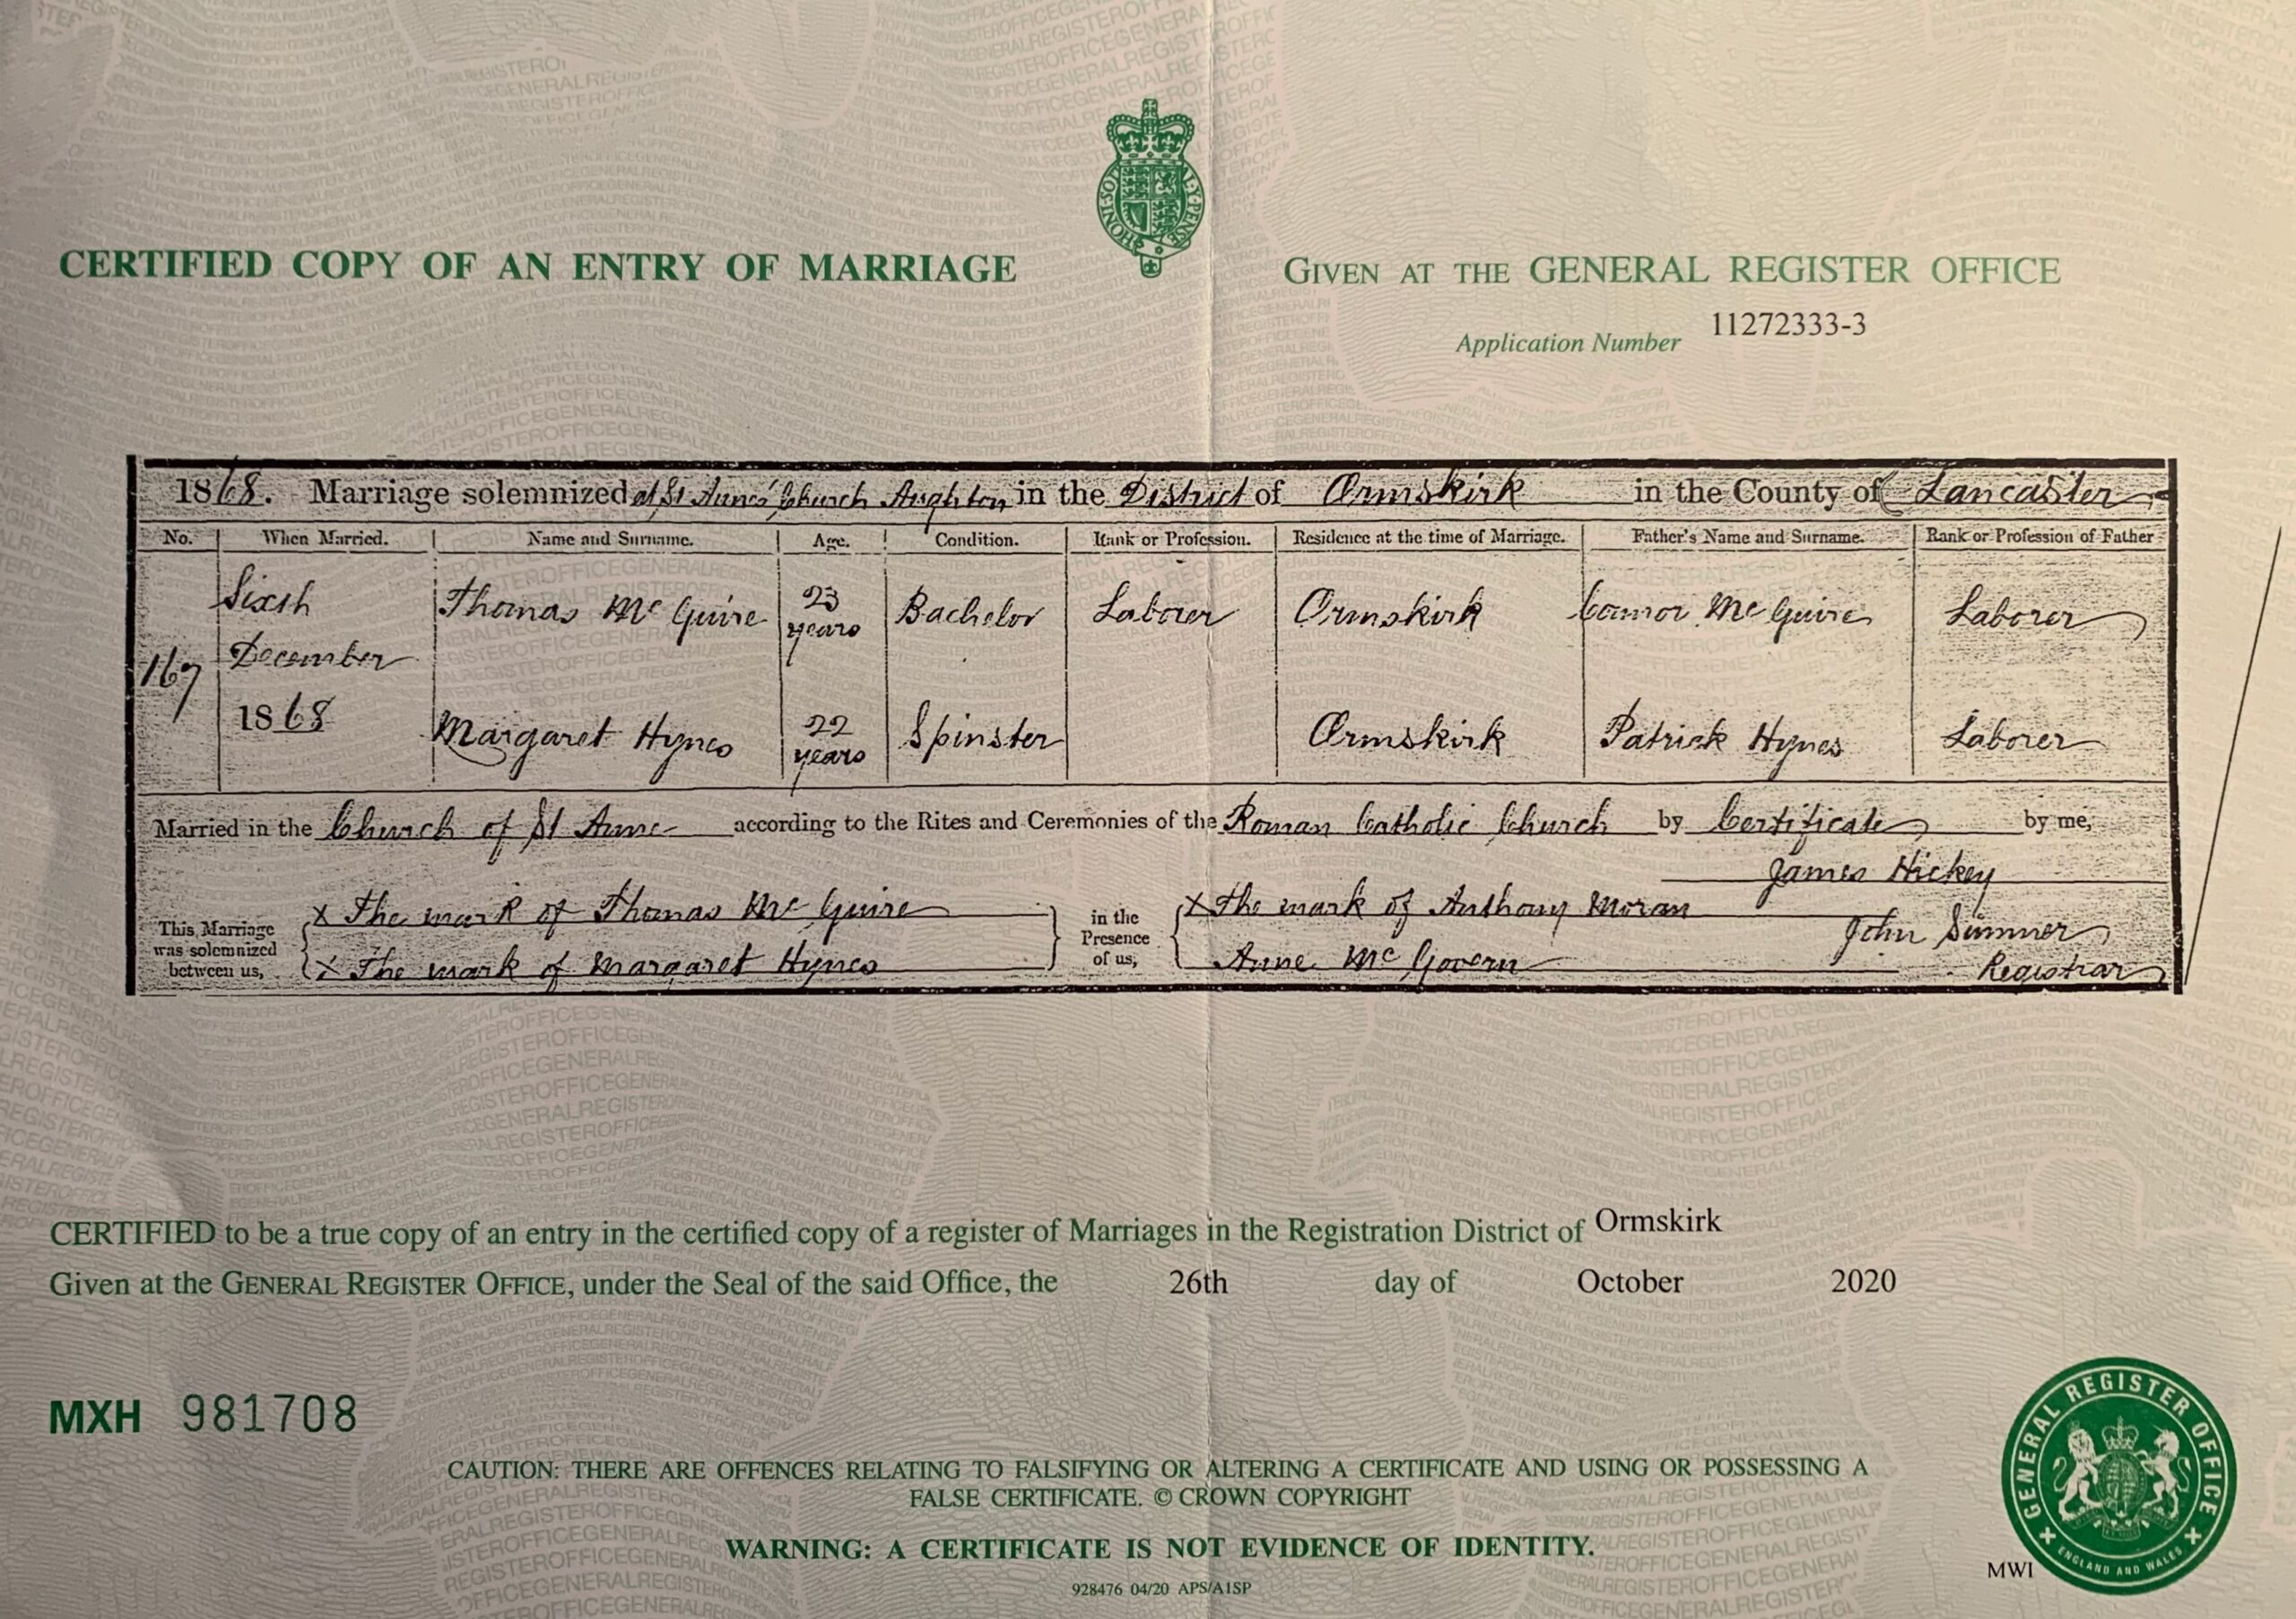 CERTIFIED COPY OF AN ENTRY OF MARRIAGE
GIVEN AT THE GENERAL REGISTER OFFICE
Application Number 11272333-3
1868. Marriage solemnized at St Anne's Church Aughton in the District of Ormskirk in the County of Lancaster
No. When Married. Name and Surname. Age. Condition. Rank or Profession. Residence at the time of Marriage. Father's Name and Surname. Rank or Profession of Father
167 Sixth December 1868
Thomas McGuire 23 years Bachelor Laborer Ormskirk Connor McGuire Laborer
Margaret Hynes 22 years Spinster Ormskirk Patrick Hynes Laborer
Married in the Church of St Anne according to the Rites and Ceremonies of the Roman Catholic Church by Certificate by me,
James Hickey
This Marriage was solemnized between us,
X The mark of Thomas McGuire
X The mark of Margaret Hynes
in the Presence of us,
X The mark of Anthony Moran
Anne McGovern
John Sumner
Registrar
CERTIFIED to be a true copy of an entry in the certified copy of a register of Marriages in the Registration District of Ormskirk
Given at the GENERAL REGISTER OFFICE, under the Seal of the said Office, the 26th day of October 2020
MXH 981708
CAUTION: THERE ARE OFFENCES RELATING TO FALSIFYING OR ALTERING A CERTIFICATE AND USING OR POSSESSING A
FALSE CERTIFICATE. © CROWN COPYRIGHT
WARNING: A CERTIFICATE IS NOT EVIDENCE OF IDENTITY.
928476 04/20 APS/A1SP
MWI
GENERAL REGISTER OFFICE
ENGLAND AND WALES